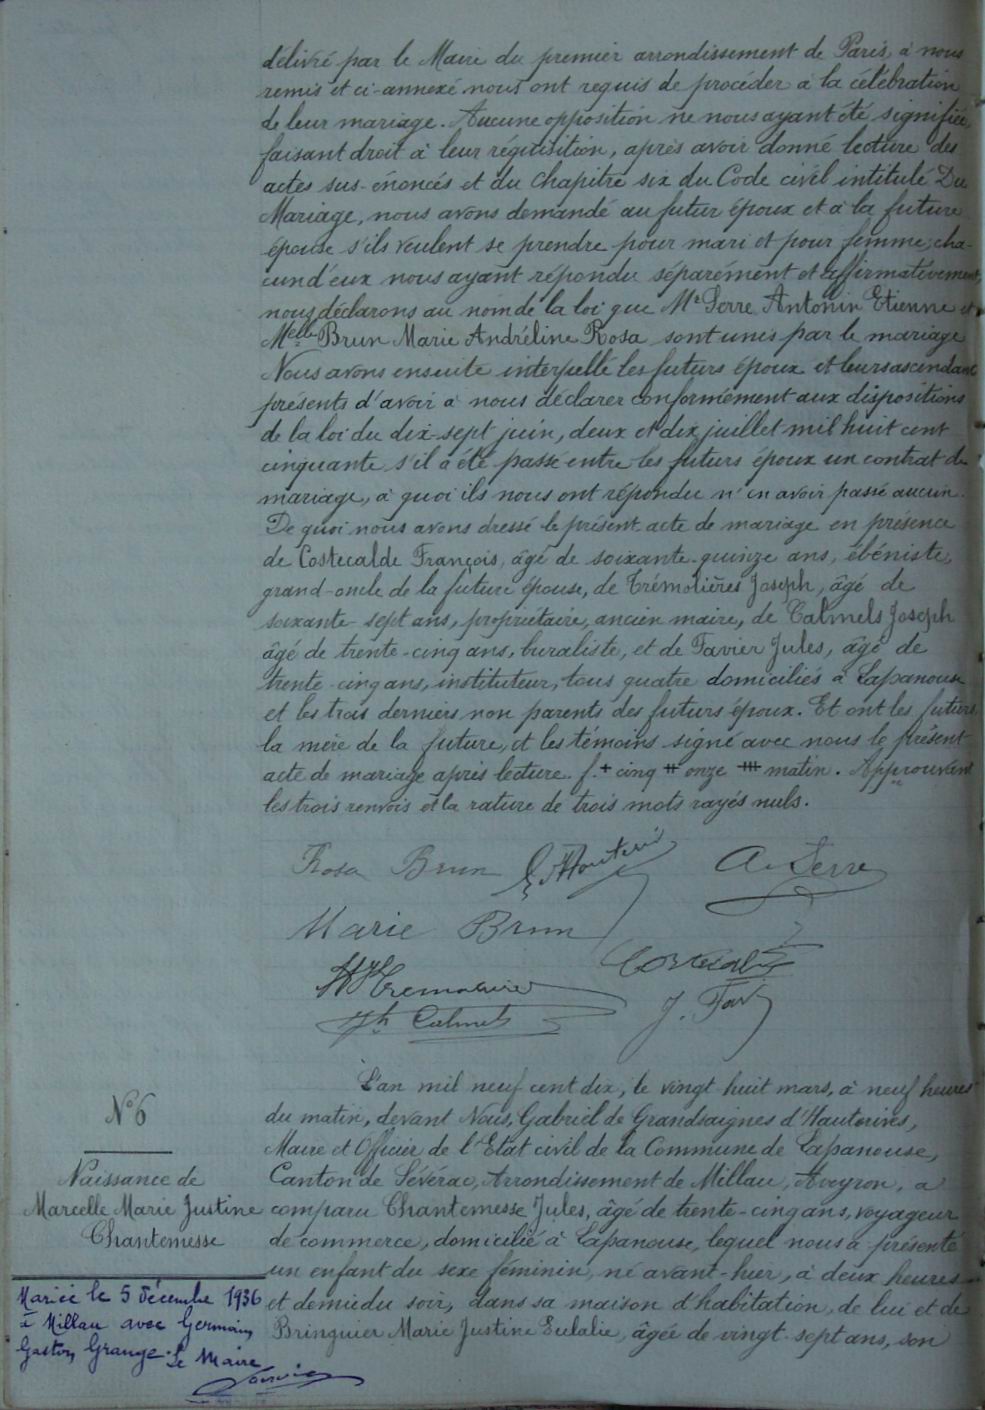 délivré par le Maire du premier arrondissement de Paris, à nous
remis et ci-annexé nous ont requis de procéder à la célébration
de leur mariage. Aucune opposition ne nous ayant été signifiée,
faisant droit à leur réquisition, après avoir donné lecture des
actes sus-énoncés et du chapitre six du Code civil intitulé Du
Mariage, nous avons demandé au futur époux et à la future
épouse s'ils veulent se prendre pour mari et pour femme; cha-
cun d'eux nous ayant répondu séparément et affirmativement,
nous déclarons au nom de la loi que Mr Serre Antonin Etienne et
Melle Brun Marie Andréline Rosa sont unis par le mariage
Nous avons ensuite interpellé les futurs époux et leurs ascendants
présents d'avoir à nous déclarer conformément aux dispositions
de la loi du dix-sept juin, deux et dix juillet mil huit cent
cinquante s'il a été passé entre les futurs époux un contrat de
mariage, à quoi ils nous ont répondu n'en avoir passé aucun.
De quoi nous avons dressé le présent acte de mariage en présence
de Costecalde François, âgé de soixante-quinze ans, ébéniste,
grand-oncle de la future épouse, de Trémolières Joseph, âgé de
soixante-sept ans, propriétaire, ancien maire, de Calmels Joseph
âgé de trente-cinq ans, buraliste, et de Favier Jules, âgé de
trente-cinq ans, instituteur, tous quatre domiciliés à Lapanouse
et les trois derniers non parents des futurs époux. Et ont les futurs,
la mère de la future, et les témoins signé avec nous le présent
acte de mariage après lecture. f. + cinq ++ onze +++ matin. Approuvant
les trois renvois et la rature de trois mots rayés nuls.
Rosa Brun A. Serre
Marie Brun
J. Fav
N° 6
Naissance de
Marcelle Marie Justine
Chantemesse
Mariée le 5 décembre 1936
à Millau avec Germain,
Gaston, Grange. Le Maire
L'an mil neuf cent dix, le vingt huit mars, à neuf heures
du matin, devant Nous, Gabriel de Grandsaignes d'Hauterives,
Maire et Officier de l'Etat civil de la Commune de Lapanouse,
Canton de Sévérac, Arrondissement de Millau, Aveyron, a
comparu Chantemesse Jules, âgé de trente-cinq ans, voyageur
de commerce, domicilié à Lapanouse, lequel nous a présenté
un enfant du sexe féminin, né avant-hier, à deux heures
et demie du soir, dans sa maison d'habitation, de lui et de
Bringuier Marie Justine Eulalie, âgée de vingt-sept ans, son